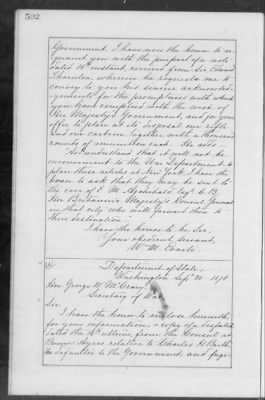 502
Government. I have now the honor to ac-
quaint you with the purport of a note
dated 14th instant, received from Sir Edward
Thornton, wherein he requests me to
convey to you his sincere acknowled-
gements for the promptness with which
you have complied with the wish of
Her Majesty's Government, and for your
offer to place at its disposal one rifle
and one carbine together with a thousand
rounds of ammunition each. He adds
As I understand that it will not be
inconvenient to the War Department to
place these articles at New York, I have the
honor to ask that they may be sent to
the care of E. M. Archibald, Esqr. C.B.
Her Britannic Majesty's Consul General
in that city who will forward them to
their destination.
I have the honor to be, Sir,
Your obedient servant,
Wm. M. Evarts.
Department of State,
Washington Sept. 20 1878.
Hon. George W. McCrary,
Secretary of War.
Sir
I have the honor to enclose herewith,
for your information, a copy of a despatch
dated the 14th ultimo, from the Consul at
Buenos Ayres relative to Charles H.
a defaulter to the Government, and fugi-